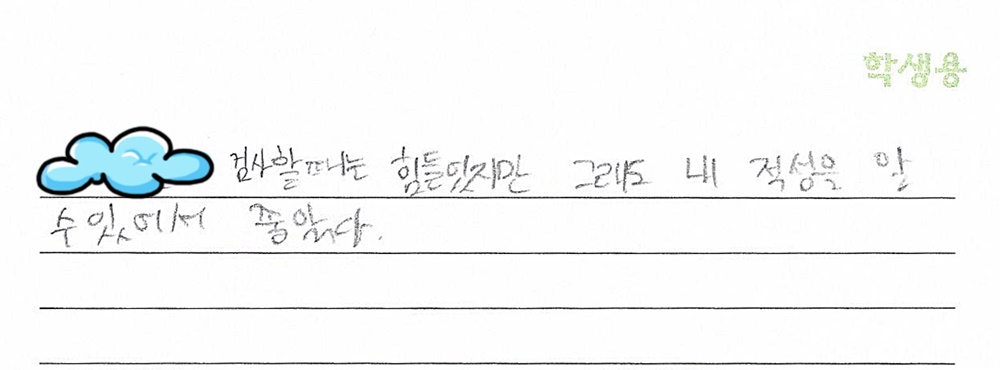 학생용
검사할때는 힘들었지만 그래도 내 적성을 알
수있어서 좋았다.